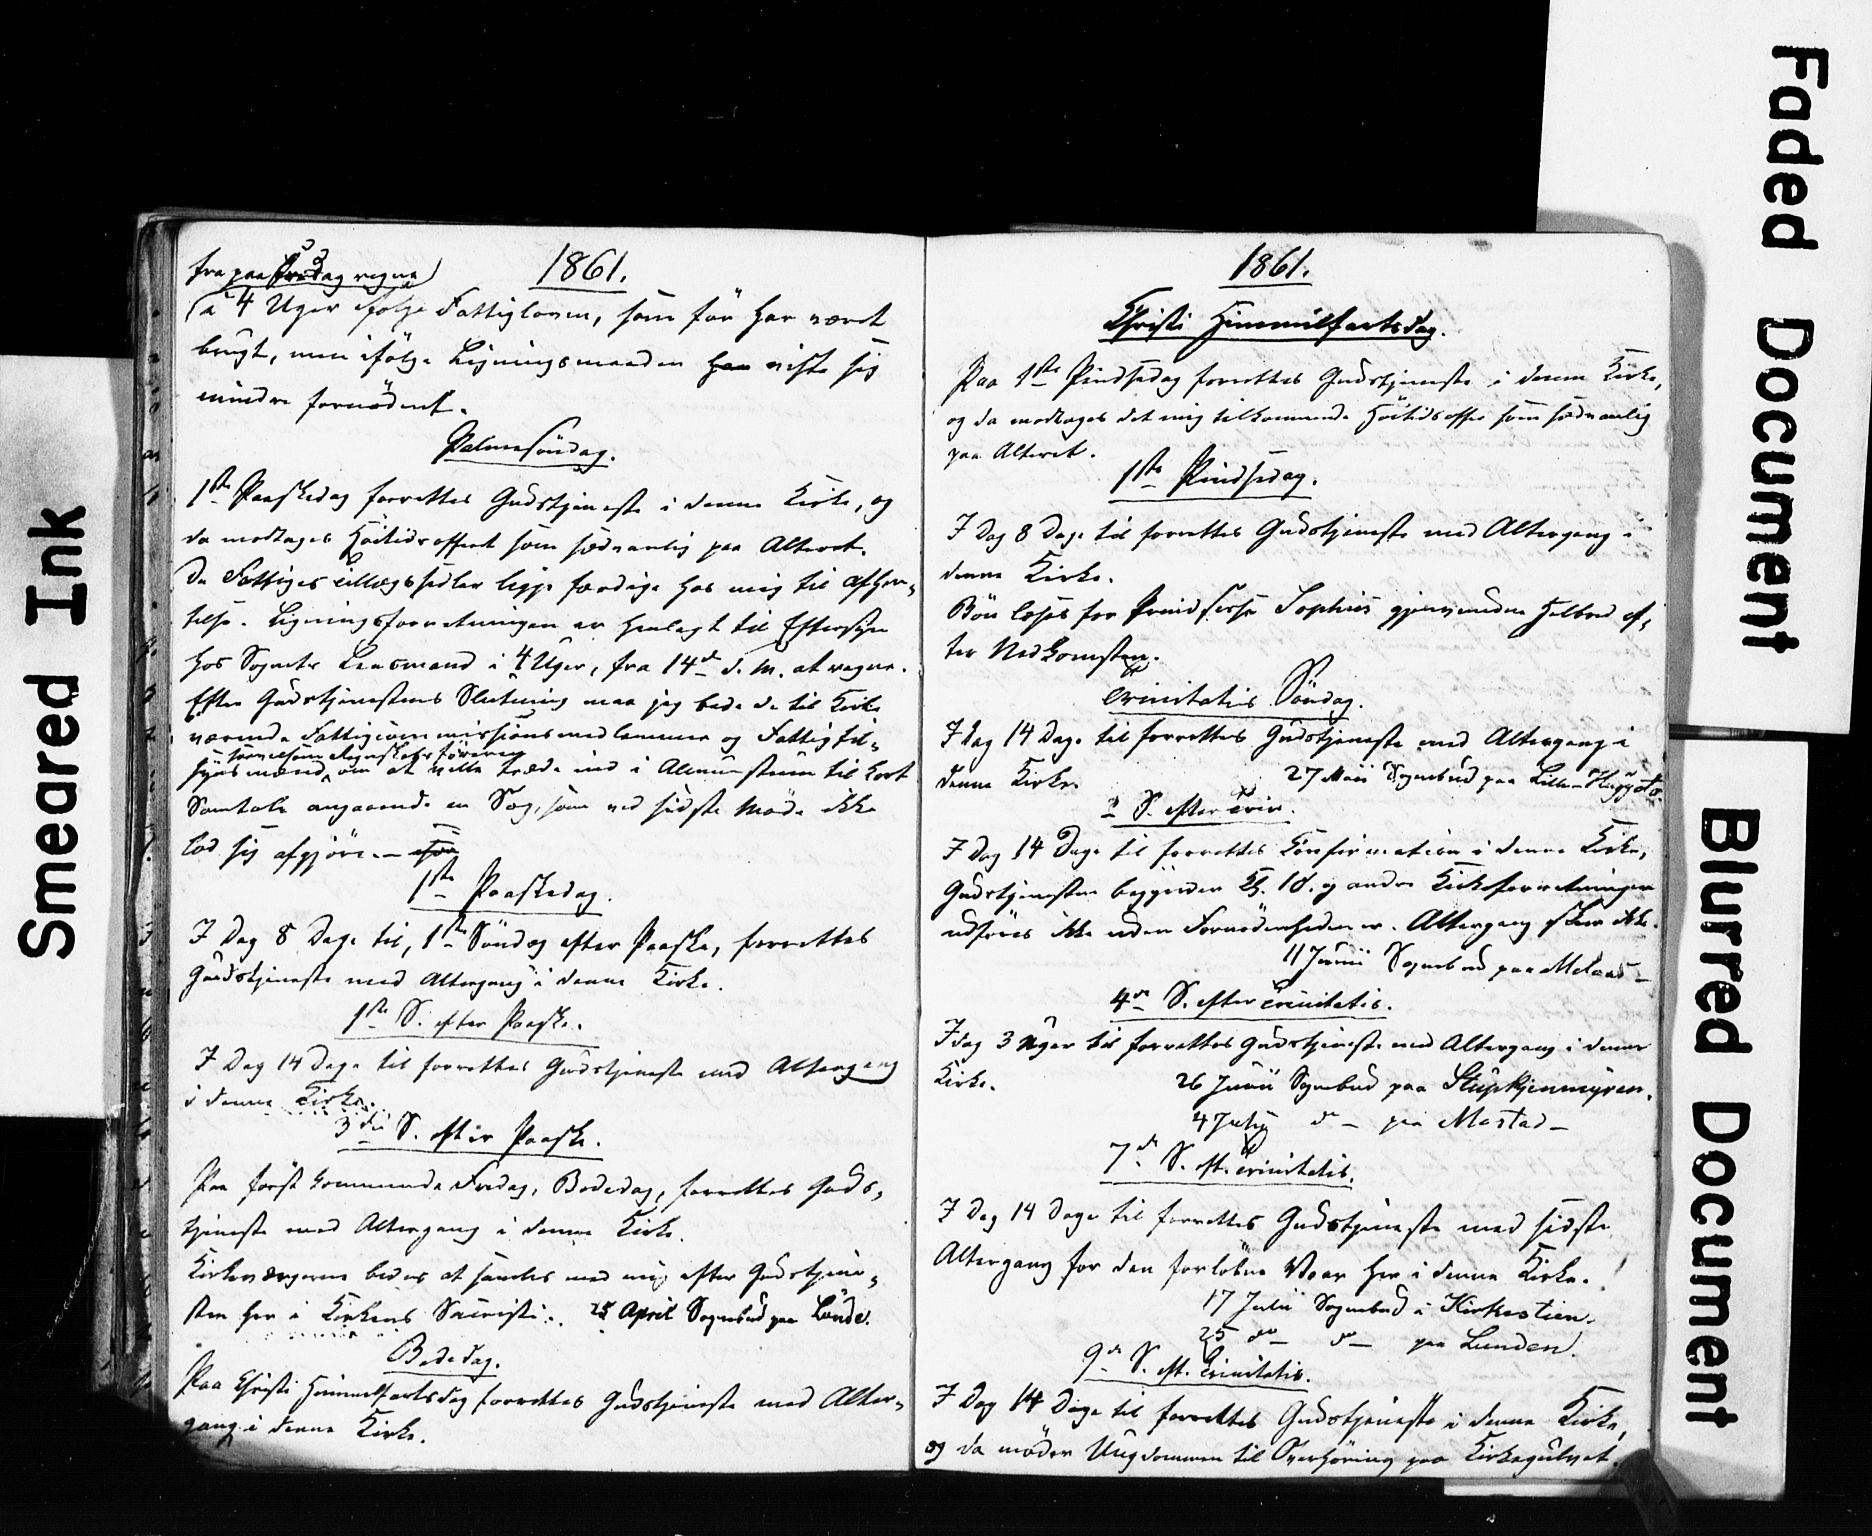 Smeared Ink
1861.
fra paa Fredag regne
(a 4 Uger ifølge Fattigloven, som før har været
brugt, men ifølge Ligningsmaaden har viste sig
mindre fornødent.
Palmesöndag.
1ste Paaskedag forrettes Gudstjeneste i denne Kirke, og
da modtages Höitidsofferet som sædvanlig paa Alteret.
De Fattiges tillægssedler ligge færdige hos mig til Afhen-
telse. Ligningsforretningen er henlagt til Eftersyn
hos Sognets Lensmand i 4 Uger, fra 14de d. M. at regne.
Efter Gudstjenestens Slutning maa jeg bede de til Kirke
værende Fattigcommissionsmedlemmer og Fattigtil-
synsmænd, om at ville træde ind i til kort
Samtale angaaende en Sag, som ved sidste Möde ikke
lod sig afgjöre.
1ste Paaskedag.
I Dag 8 Dage til, 1ste Söndag efter Paaske, forrettes
Gudstjeneste med Altergang i denne Kirke.
1ste S. efter Paaske.
I Dag 14 Dage til forrettes Gudstjeneste med Altergang
i denne Kirke.
3die S. efter Paaske.
Paa först kommende Fredag, Bededag, forrettes Guds-
tjeneste med Altergang i denne Kirke.
Kirkeværgerne bedes at samles med mig efter Gudstjene-
sten her i Kirkens Sacristi. 25 April Sognebud paa Lunde.
Bededag.
Paa Christi Himmelfartsdag forrettes Gudstjeneste med Alter-
gang i denne Kirke.
1861.
Christi Himmelfartsdag.
Paa 1ste Pindsedag forrettes Gudstjeneste i denne Kirke,
og da modtages det mig tilkommende Höitidsoffer som sædvanlig
paa Alteret.
1ste Pindsedag.
I Dag 8 Dage til forrettes Gudstjeneste med Altergang i
denne Kirke.
Bön læses for Prindsesse Sophies gjenvundne Helbred ef-
ter Nedkomsten.
Trinitatis Söndag.
I Dag 14 Dage til forrettes Gudstjeneste med Altergang i
denne Kirke. 27 Maii Sognebud paa Lille-
2 S. efter Trin.
I Dag 14 Dage til forrettes Confirmation i denne Kirke,
Gudstjenesten begynder Kl. 10. og andre Kirkeforretninger
udföres ikke uden Fornödenheden er. Altergang skeer ikke.
11 Junii Sognebud paa
4de S. efter Trinitatis.
I dag 3 Uger til forrettes Gudstjeneste med Altergang i denne
Kirke. 26 Junii Sognebud paa Stupkjenmyren.
4 July do - paa Mostad -
7de S. eft. Trinitatis.
I Dag 14 Dage til forrettes Gudstjeneste med sidste
Altergang for den forløbne Vaar her i denne Kirke.
17 Julii Sognebud i Kirkestien.
25 do - do - paa Lunden.
9de S. eft. Trinitatis.
I Dag 14 Dage til forrettes Gudstjeneste i denne Kirke,
og da möder Ungdommen til Overhöring paa Kirkegulvet.
Faded Document
Blurred Document